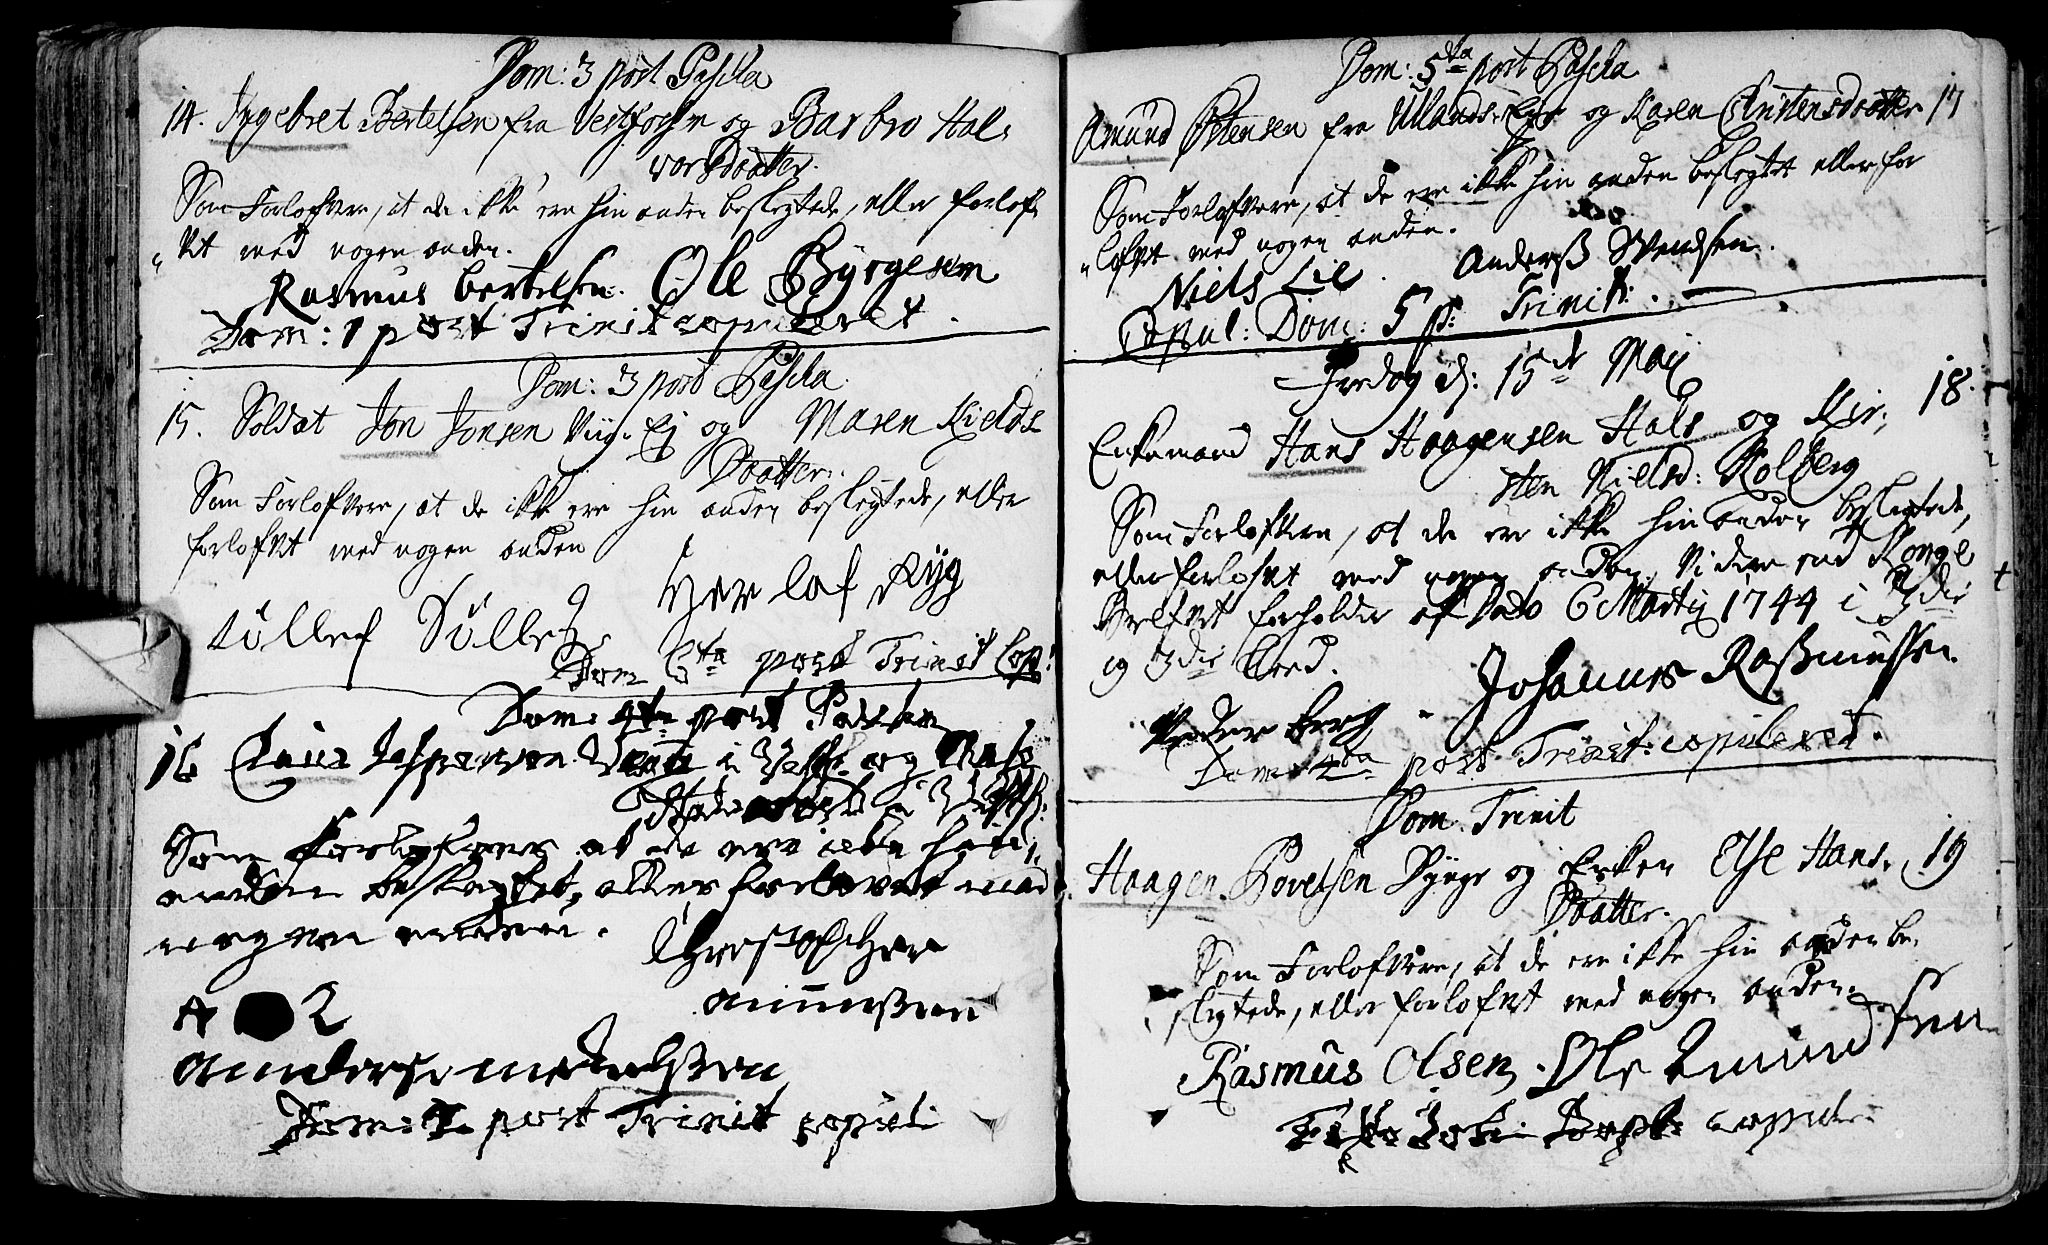 Dom: 3 post Pascha
14. Ingebret Bertelsen fra Vestfossen og Barbro Hal-
vorsdaatter.
Som Forlofvere, at de ikke ere hin anden beslegtede, eller forlof-
vet med nogen anden.
Rasmus Bertelsen. Ole Byrgesen
Dom: 1 post Trinit copuleret.
Dom: 3 post Pascha
15. Soldat Jon Jonsen og Maren Kields
Daatter.
Som Forlofvere, at de ikke ere hin anden beslegtede, eller
forlofvet med nogen anden
Herlof Ryg
töllef
Dom 6ta post Trinit Cop:
Dom: 4ta post Pascha
16 Jespersen i og
Som Forlofvere at de ere icke hin
anden beslegtet, eller forlovet med
nogen anden.
Christoffer
A 2
Dom: post Trinit copuli
Dom: 5ta post Pascha
Amund Petersen fra Ullands- og Karen Christensdaatter 17
Som Forlofvere, at de ere ikke hin anden beslegtet eller for
lofvet med nogen anden.
Niels Lie. Anderß Svendsen.
Copul: Dom: 5 p: Trinit:
Fredag d: 15de Maij
Enkemand Hans Haagensen Hals og Kir- 18.
sten Nielsd: Kolberg
Som Forlofvere, at de ere ikke hin anden beslegtede,
eller forlofvet med nogen anden, videre end Konge
Brefvet forholder af dato 6 Martij 1744 i 2die
og 3die Leed.
Peder Berg Johannes Raßmussen
Dom 4da post Trinit: copuleret.
Dom. Trinit
Haagen Povelsen og Enken Else Hans- 19
Daatter.
Som Forlofvere, at de ere ikke hin anden be-
slegtede, eller forlofvet med nogen anden.
Rasmus Olsen. Ole Amundsen
copuler: